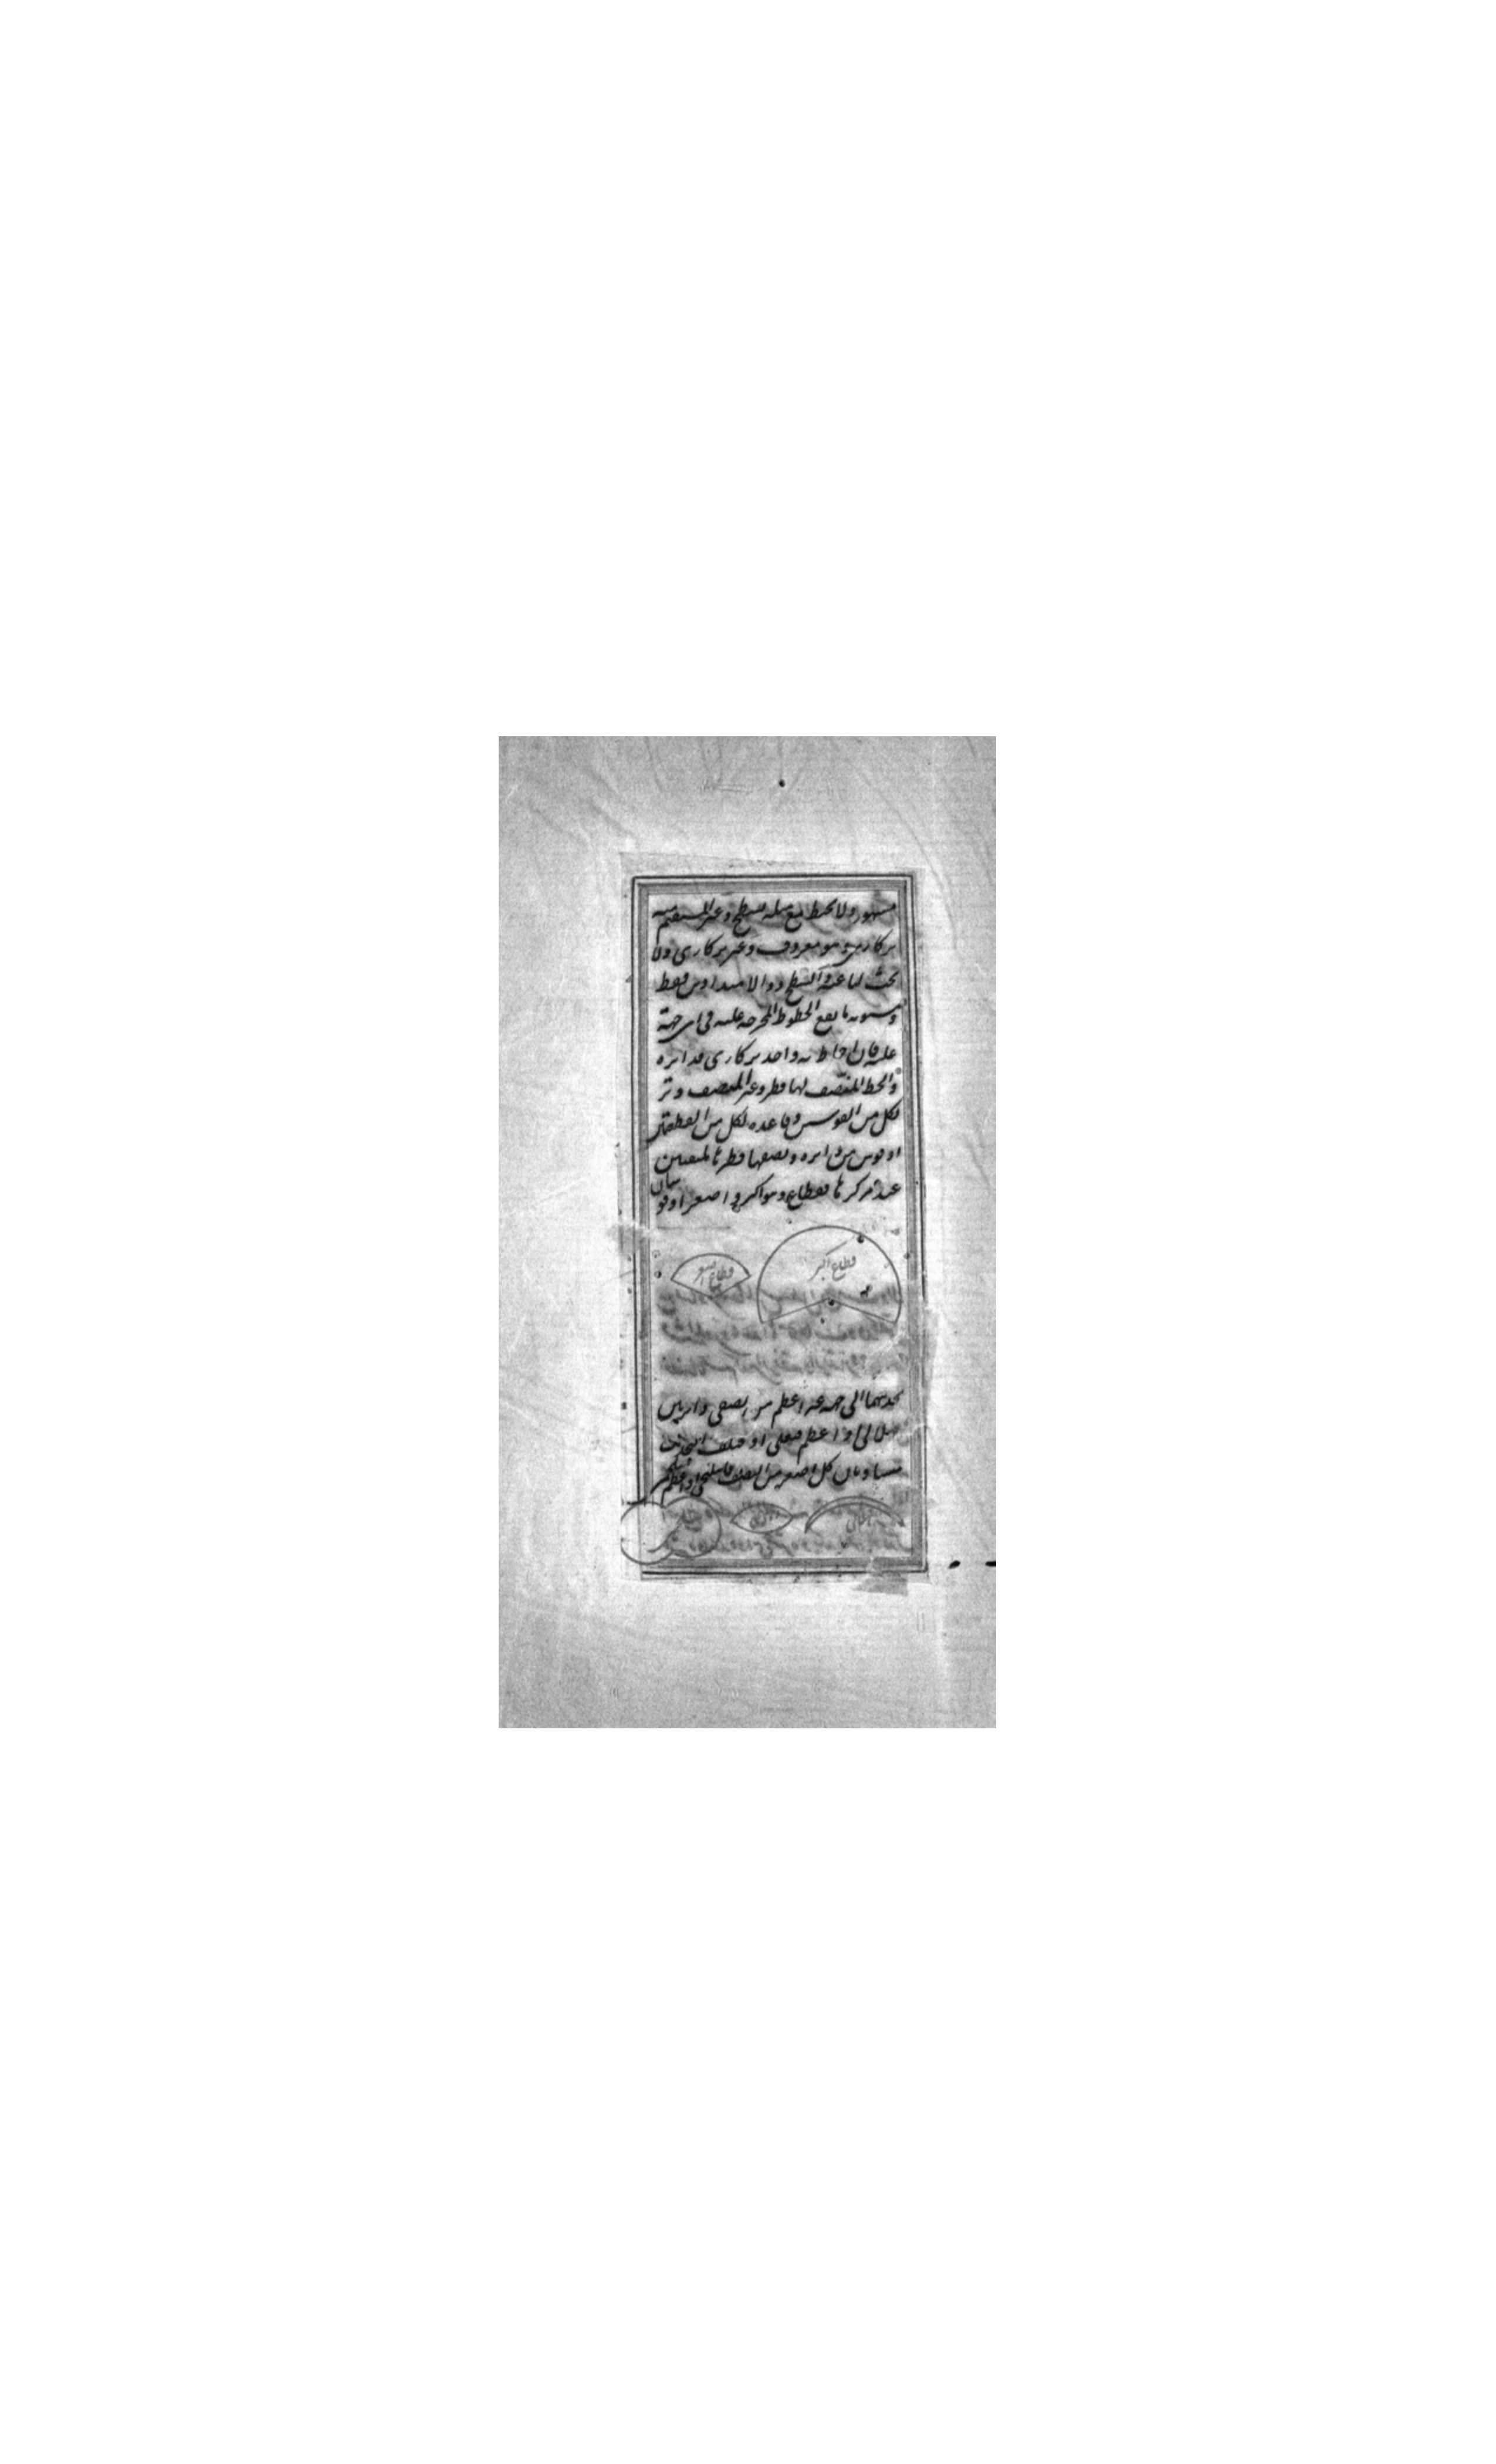 مشهورة ولا تحيط مع مثله بسطح وغير المستقيم منه
بركاري وهو معروف وغير بركاري ولا
نحث لنا عنه والسطح ذو الامتدادين فقط
ومستويه ما يقع الخطوط المخرجة عليه في اي جهة
عليه فان احاط به واحد بركاري فدائرة
والخط المنصف لها قطر وغير المنصف وتر
لكل من القوسين وقاعدة لكل من القطعتين
او قوس من دائرة ونصفا قطرها ملتقيين
عند مركزها فقطاع وهو اكبر و اصغر او قوسان
قطاع اكبر
قطاع اصغر
تحديبهما الى جهة غير اعظم من نصفي دائرتين
فهلالي او اعظم فنعلي او مختلف التحديب
متساويان كل اصغر من النصف فاهليلجي او اعظم فشلجمي